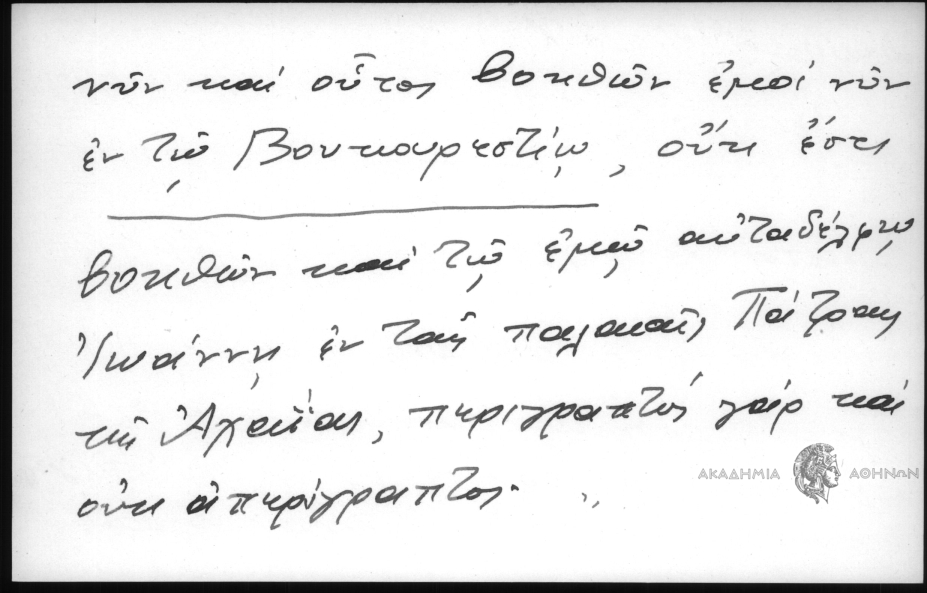 νῦν καὶ οὗτος βοηθῶν ἐμοὶ νῦν
ἐν τῷ Βουκουρεστίῳ, οὔκ ἐστι
βοηθῶν καὶ τῷ ἐμῷ αὐταδέλφῳ
Ἰωάννῃ ἐν ταῖς παλαιαῖς Πάτραις
τῆς Ἀχαΐας, περιγραπτὸς γάρ καὶ
οὐκ ἀπερίγραπτος. "
ΑΚΑΔΗΜΙΑ ΑΘΗΝΩΝ